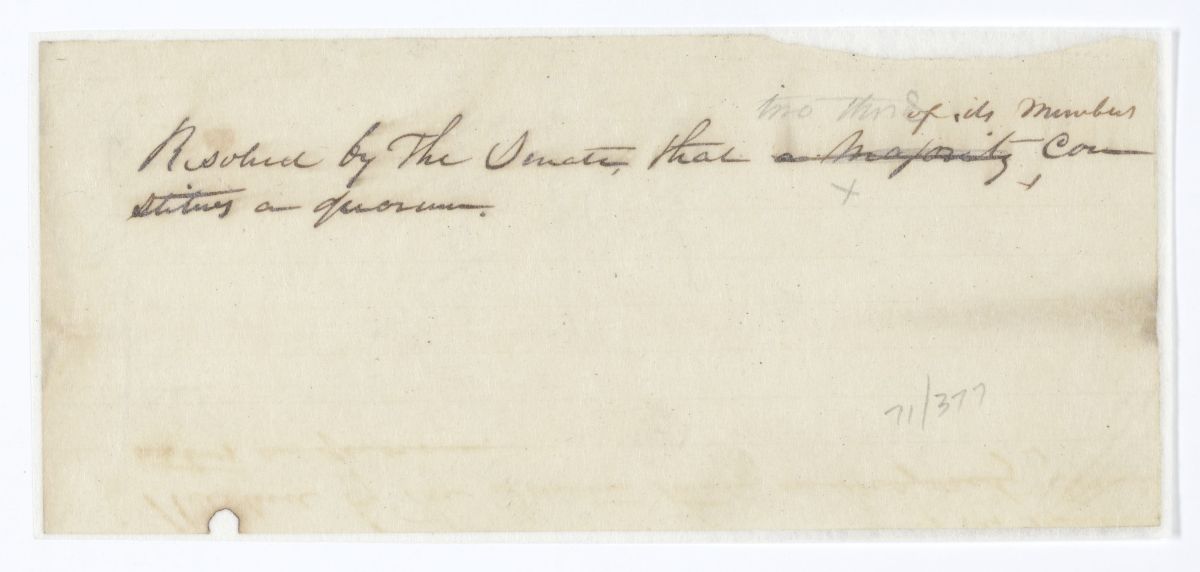 two third of its Members
Resolved by The Senate, that a Majority, Con
stitues a quorum.
71/377